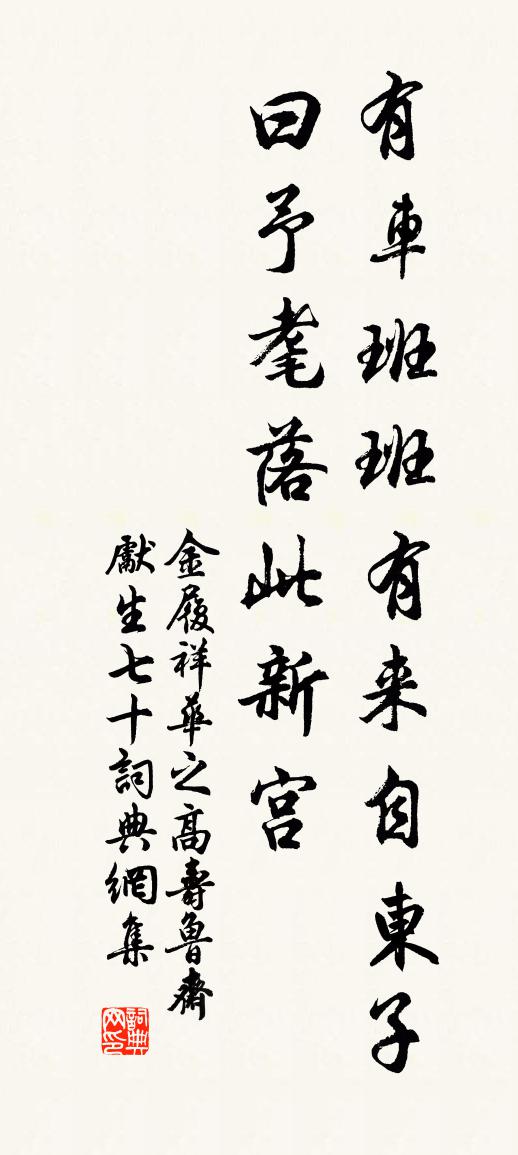 有車班班有来自東子
曰予耄落此新宫
金履祥華之高壽魯齋
獻生七十詞典網集
詞典网印